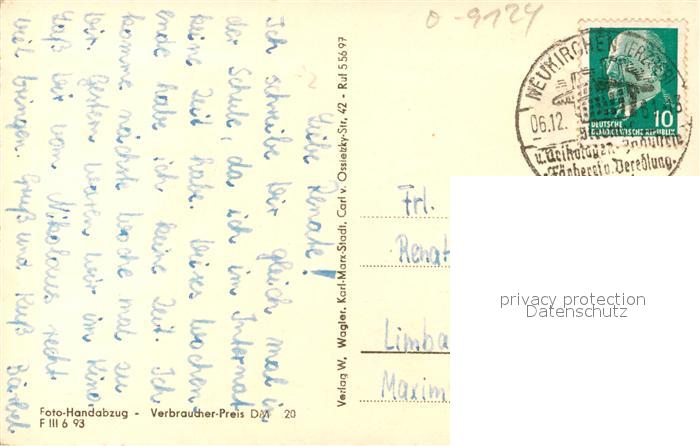 o-9124
Liebe Renate!
Ich schreibe Dir gleich mal in
der Schule, da ich im Internat
keine Zeit habe. Dieses Wochen-
ende habe ich keine Zeit. Ich
komme nächste Woche mal zu
Dir. Gestern waren wir im Kino.
Laß Dir vom Nikolaus recht
viel bringen. Gruß und Kuß Bärbel
Foto-Handabzug - Verbraucher-Preis DM 20
F III 6 93
Verlag W. Wagler, Karl-Marx-Stadt, Carl v. Ossietzky-Str. 42 - Ruf 556 97
NEUKIRCHEN (ERZGEB)
06.12.
u. Trikotagen-Industrie
Färberei u. Veredlung
DEUTSCHE
DEMOKRATISCHE REPUBLIK
10
Frl.
Renat
Limba
Maxim
privacy protection
Datenschutz